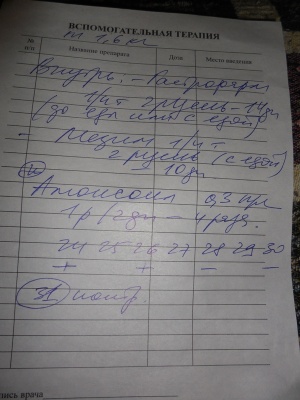 ВСПОМОГАТЕЛЬНАЯ ТЕРАПИЯ
m 1,6 кг
№ п/п Название препарата Доза Место введения
Внутрь. – Гастроферм
1/4 т 2 р/день – 14 дн
(до еды или с едой)
– Мезим 1/4 т
2 р/день (с едой)
10 дн
0,3 мл
1 р/2 дн – 4 раза.
24 25 26 27 28 29 30
+ + – –
31 контр.
пись врача